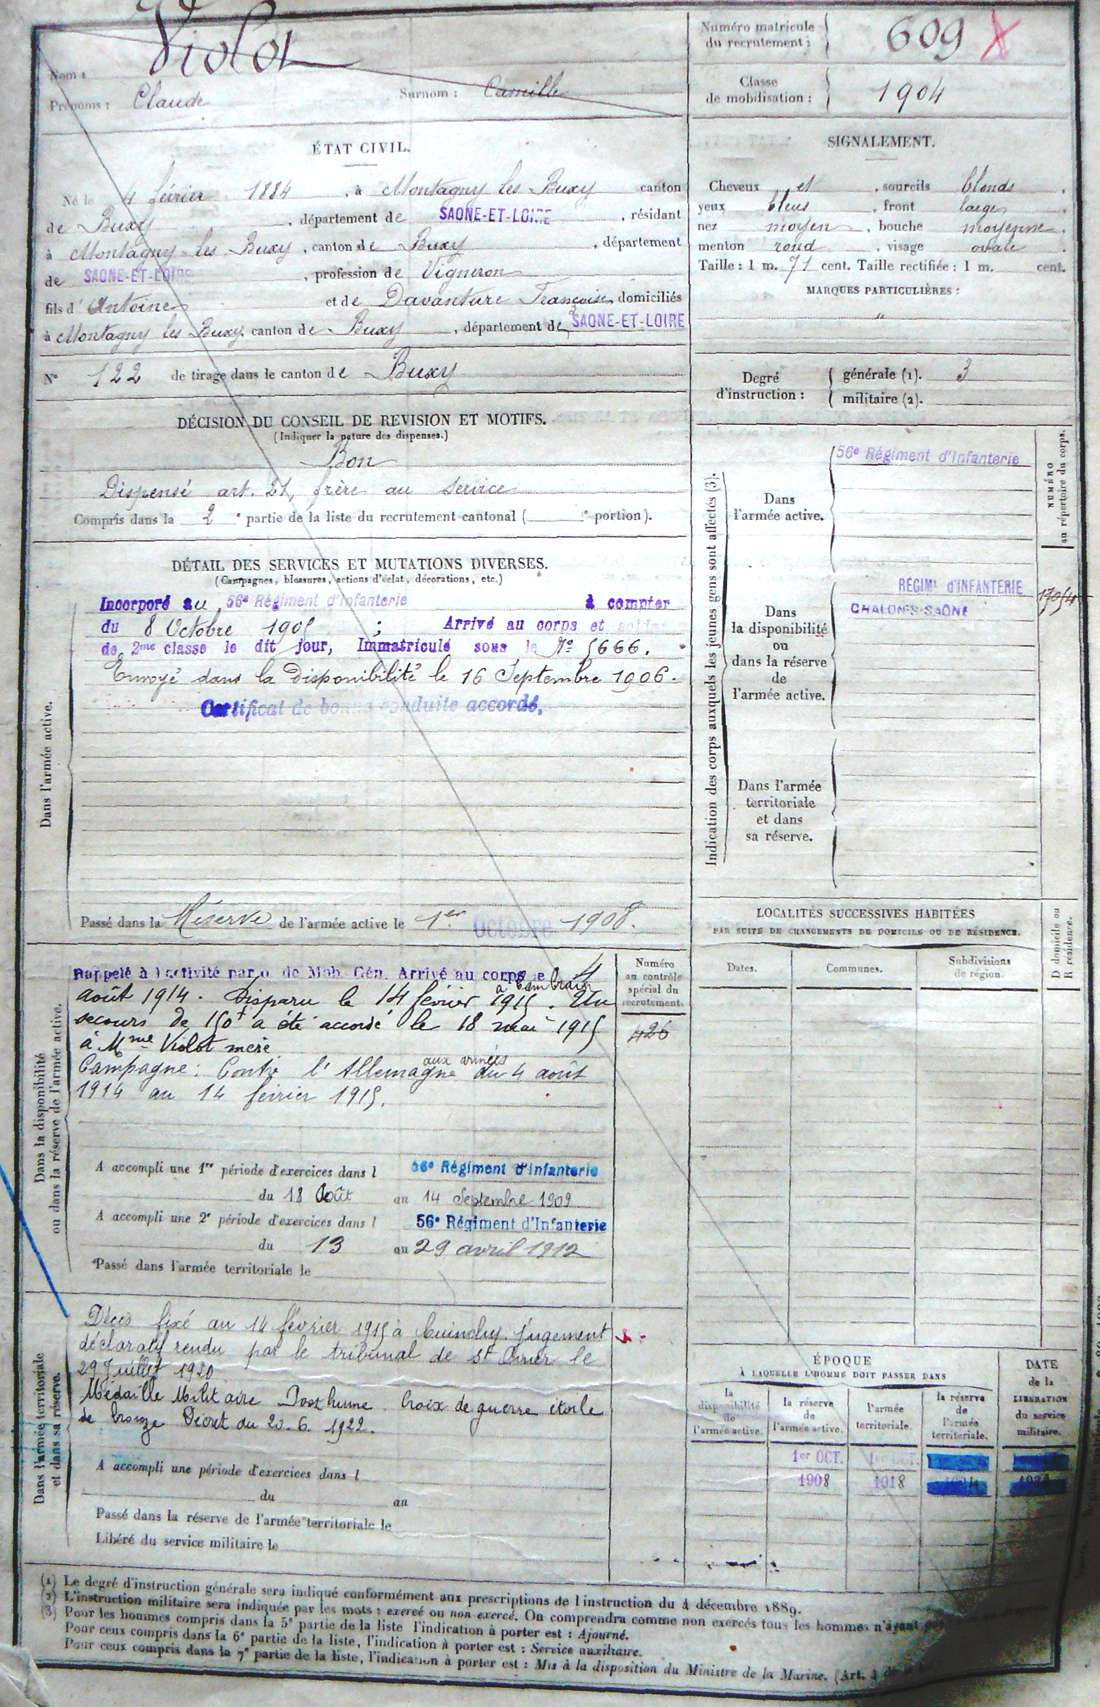 Nom : Violot
Prénoms : Claude Surnom : Camille
Numéro matricule du recrutement : 609
Classe de mobilisation : 1904
ÉTAT CIVIL.
Né le 4 février 1884, à Montagny les Buxy canton
de Buxy, département de SAONE-ET-LOIRE, résidant
à Montagny les Buxy, canton de Buxy, département
de SAONE-ET-LOIRE, profession de Vigneron
fils d'Antoine et de Davanture Françoise domiciliés
à Montagny les Buxy, canton de Buxy, département de SAONE-ET-LOIRE
N° 122 de tirage dans le canton de Buxy
SIGNALEMENT.
Cheveux et, sourcils blonds,
yeux bleus, front large,
nez moyen, bouche moyenne,
menton rond, visage ovale.
Taille : 1 m. 71 cent. Taille rectifiée : 1 m. cent.
MARQUES PARTICULIÈRES :
"
Degré d'instruction : générale (1). 3
militaire (2).
DÉCISION DU CONSEIL DE REVISION ET MOTIFS.
(Indiquer la nature des dispenses.)
Bon
Dispensé art. 21, frère au service
Compris dans la 2e partie de la liste du recrutement cantonal ( e portion).
DÉTAIL DES SERVICES ET MUTATIONS DIVERSES.
(Campagnes, blessures, actions d'éclat, décorations, etc.)
Dans l'armée active.
Incorporé au 56e Régiment d'Infanterie à compter
du 8 Octobre 1905 ; Arrivé au corps et soldat
de 2me classe le dit jour, Immatriculé sous le N° 5666.
Envoyé dans la disponibilité le 16 Septembre 1906.
Certificat de bonne conduite accordé.
Passé dans la Réserve de l'armée active le 1er Octobre 1908.
Indication des corps auxquels les jeunes gens sont affectés (3).
NUMÉRO au répertoire du corps.
Dans l'armée active.
56e Régiment d'Infanterie
Dans la disponibilité ou dans la réserve de l'armée active.
RÉGIMt D'INFANTERIE
CHALON-S-SAÔNE
Dans l'armée territoriale et dans sa réserve.
Dans la disponibilité ou dans la réserve de l'armée active.
Rappelé à l'activité par o. de Mob. Gén. Arrivé au corps le 4
août 1914. Disparu le 14 février 1915. Un
secours de 150f a été accordé le 18 mai 1915
à Mme Violot mère
Campagne : Contre l'Allemagne aux armées du 4 août
1914 au 14 février 1915.
Numéro au contrôle spécial du recrutement.
426
A accompli une 1re période d'exercices dans l 56e Régiment d'Infanterie
du 18 Août au 14 Septembre 1909
A accompli une 2e période d'exercices dans l 56e Régiment d'Infanterie
du 13 au 29 avril 1912
Passé dans l'armée territoriale le
LOCALITÉS SUCCESSIVES HABITÉES
PAR SUITE DE CHANGEMENTS DE DOMICILE OU DE RÉSIDENCE.
Dates. Communes. Subdivisions de région.
D domicile ou R résidence.
Dans l'armée territoriale et dans sa réserve.
Décès fixé au 14 février 1915 à Cuinchy. Jugement
déclaratif rendu par le tribunal de St Omer le
29 Juillet 1920
Médaille Militaire Posthume Croix de guerre étoile
de bronze Décret du 20.6.1922.
A accompli une période d'exercices dans l
du au
Passé dans la réserve de l'armée territoriale le
Libéré du service militaire le
ÉPOQUE
À LAQUELLE L'HOMME DOIT PASSER DANS
la disponibilité de l'armée active.
la réserve de l'armée active.
l'armée territoriale.
la réserve de l'armée territoriale.
DATE de la LIBÉRATION du service militaire.
1er OCT.
1908 1918
(1) Le degré d'instruction générale sera indiqué conformément aux prescriptions de l'instruction du 4 décembre 1889.
(2) L'instruction militaire sera indiquée par les mots : exercé ou non exercé. On comprendra comme non exercés tous les hommes n'ayant
(3) Pour les hommes compris dans la 5e partie de la liste l'indication à porter est : Ajourné.
Pour ceux compris dans la 6e partie de la liste, l'indication à porter est : Service auxiliaire.
Pour ceux compris dans la 7e partie de la liste, l'indication à porter est : Mis à la disposition du Ministre de la Marine. (Art. 4 de